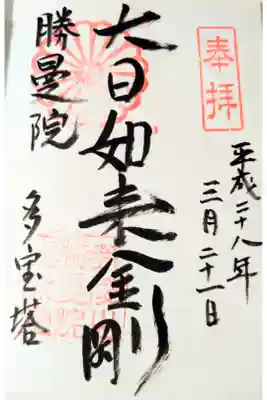 奉拝
平成二十八年
三月二十一日
大日如来金剛
勝曼院
多宝塔